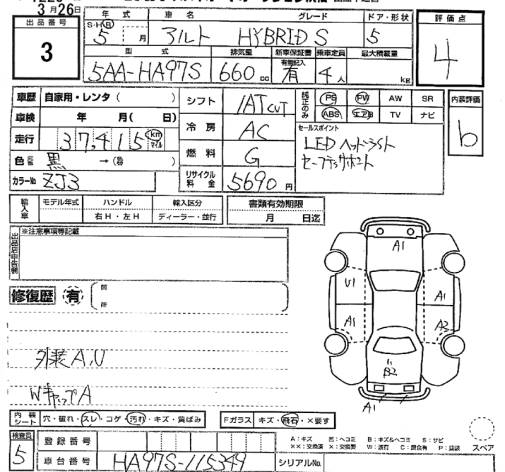 3月26日
出品番号 年式 車名 グレード ドア・形状 評価点
3 S・H・R 5 年 月 アルト HYBRID S 5 4
型式 排気量 新車保証書 乗車定員 最大積載量
有無記入
5AA-HA97S 660 cc 有 4人 kg
車歴 自家用・レンタ( ) シフト 1AT CVT 純正のみ PS PW AW SR 内装評価
車検 年 月( 日) 冷房 AC ABS エアB TV ナビ b
走行 37,415 km マイル セールスポイント
色 黒 →( 色) 燃料 G LEDヘッドライト
セーフティサポート
カラーNo ZJ3 リサイクル料金 5690円
輸入車 モデル年式 ハンドル 輸入区分 書類有効期限
右H・左H ディーラー・並行 月 日迄
※注意事項等記載
修復歴 有
A1
U1 A1
A1 A2
B2
A1
外装A,U
WキャップA
内装シート 穴・破れ・スレ・コゲ・汚れ・キズ・黄ばみ Fガラス キズ・飛石・×要す
検査員 5 登録番号
A:キズ E:ヘコミ B:キズ&ヘコミ S:サビ
スペア
車台番号 HA97S-115349 シリアルNo.